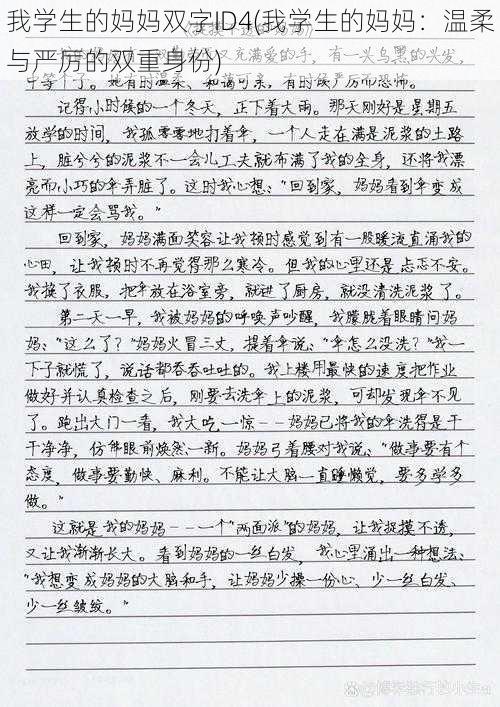 我学生的妈妈双字ID4(我学生的妈妈：温柔
与严厉的双重身份)
又充满爱的手，有一头乌黑的头发，
中等个子。她有时温柔、和蔼可亲，有时候严厉而恐怖。
记得小时候的一个冬天，正下着大雨。那天刚好是星期五
放学的时间，我孤零零地打着伞，一个人走在满是泥浆的土路
上，脏兮兮的泥浆不一会儿工夫就布满了我的全身，还将我漂
亮而小巧的伞弄脏了。这时我心想："回到家，妈妈看到伞变成
这样一定会骂我。"
回到家，妈妈满面笑容让我顿时感觉到有一股暖流直涌我的
心田，让我顿时不再觉得那么寒冷。但我的心里还是忐忑不安。
我换了衣服，把伞放在浴室旁，就进了厨房，就没清洗泥浆了。
第二天一早，我被妈妈的呼唤声吵醒，我朦胧着眼睛问妈
妈："这么了？"妈妈火冒三丈，提着伞说："伞怎么没洗？"我一
下子就慌了，说话都吞吞吐吐的。我上楼用最快的速度把作业
做好并认真检查之后，刚要去洗伞上的泥浆，可却发现伞不见
了。跑出大门一看，我大吃一惊--妈妈已将我的伞洗得是干
干净净，仿佛眼前焕然一新。妈妈弓着腰对我说："做事要有个
态度，做事要勤快、麻利。不能让大脑一直睡懒觉，要多学多
做。"
这就是我的妈妈---一个"两面派"的妈妈，让我捉摸不透，
又让我渐渐长大。看到妈妈的一丝白发，我心里涌出一种想法：
"我想变成妈妈的大脑和手，让妈妈少操一份心、少一丝白发、
少一丝皱纹。"